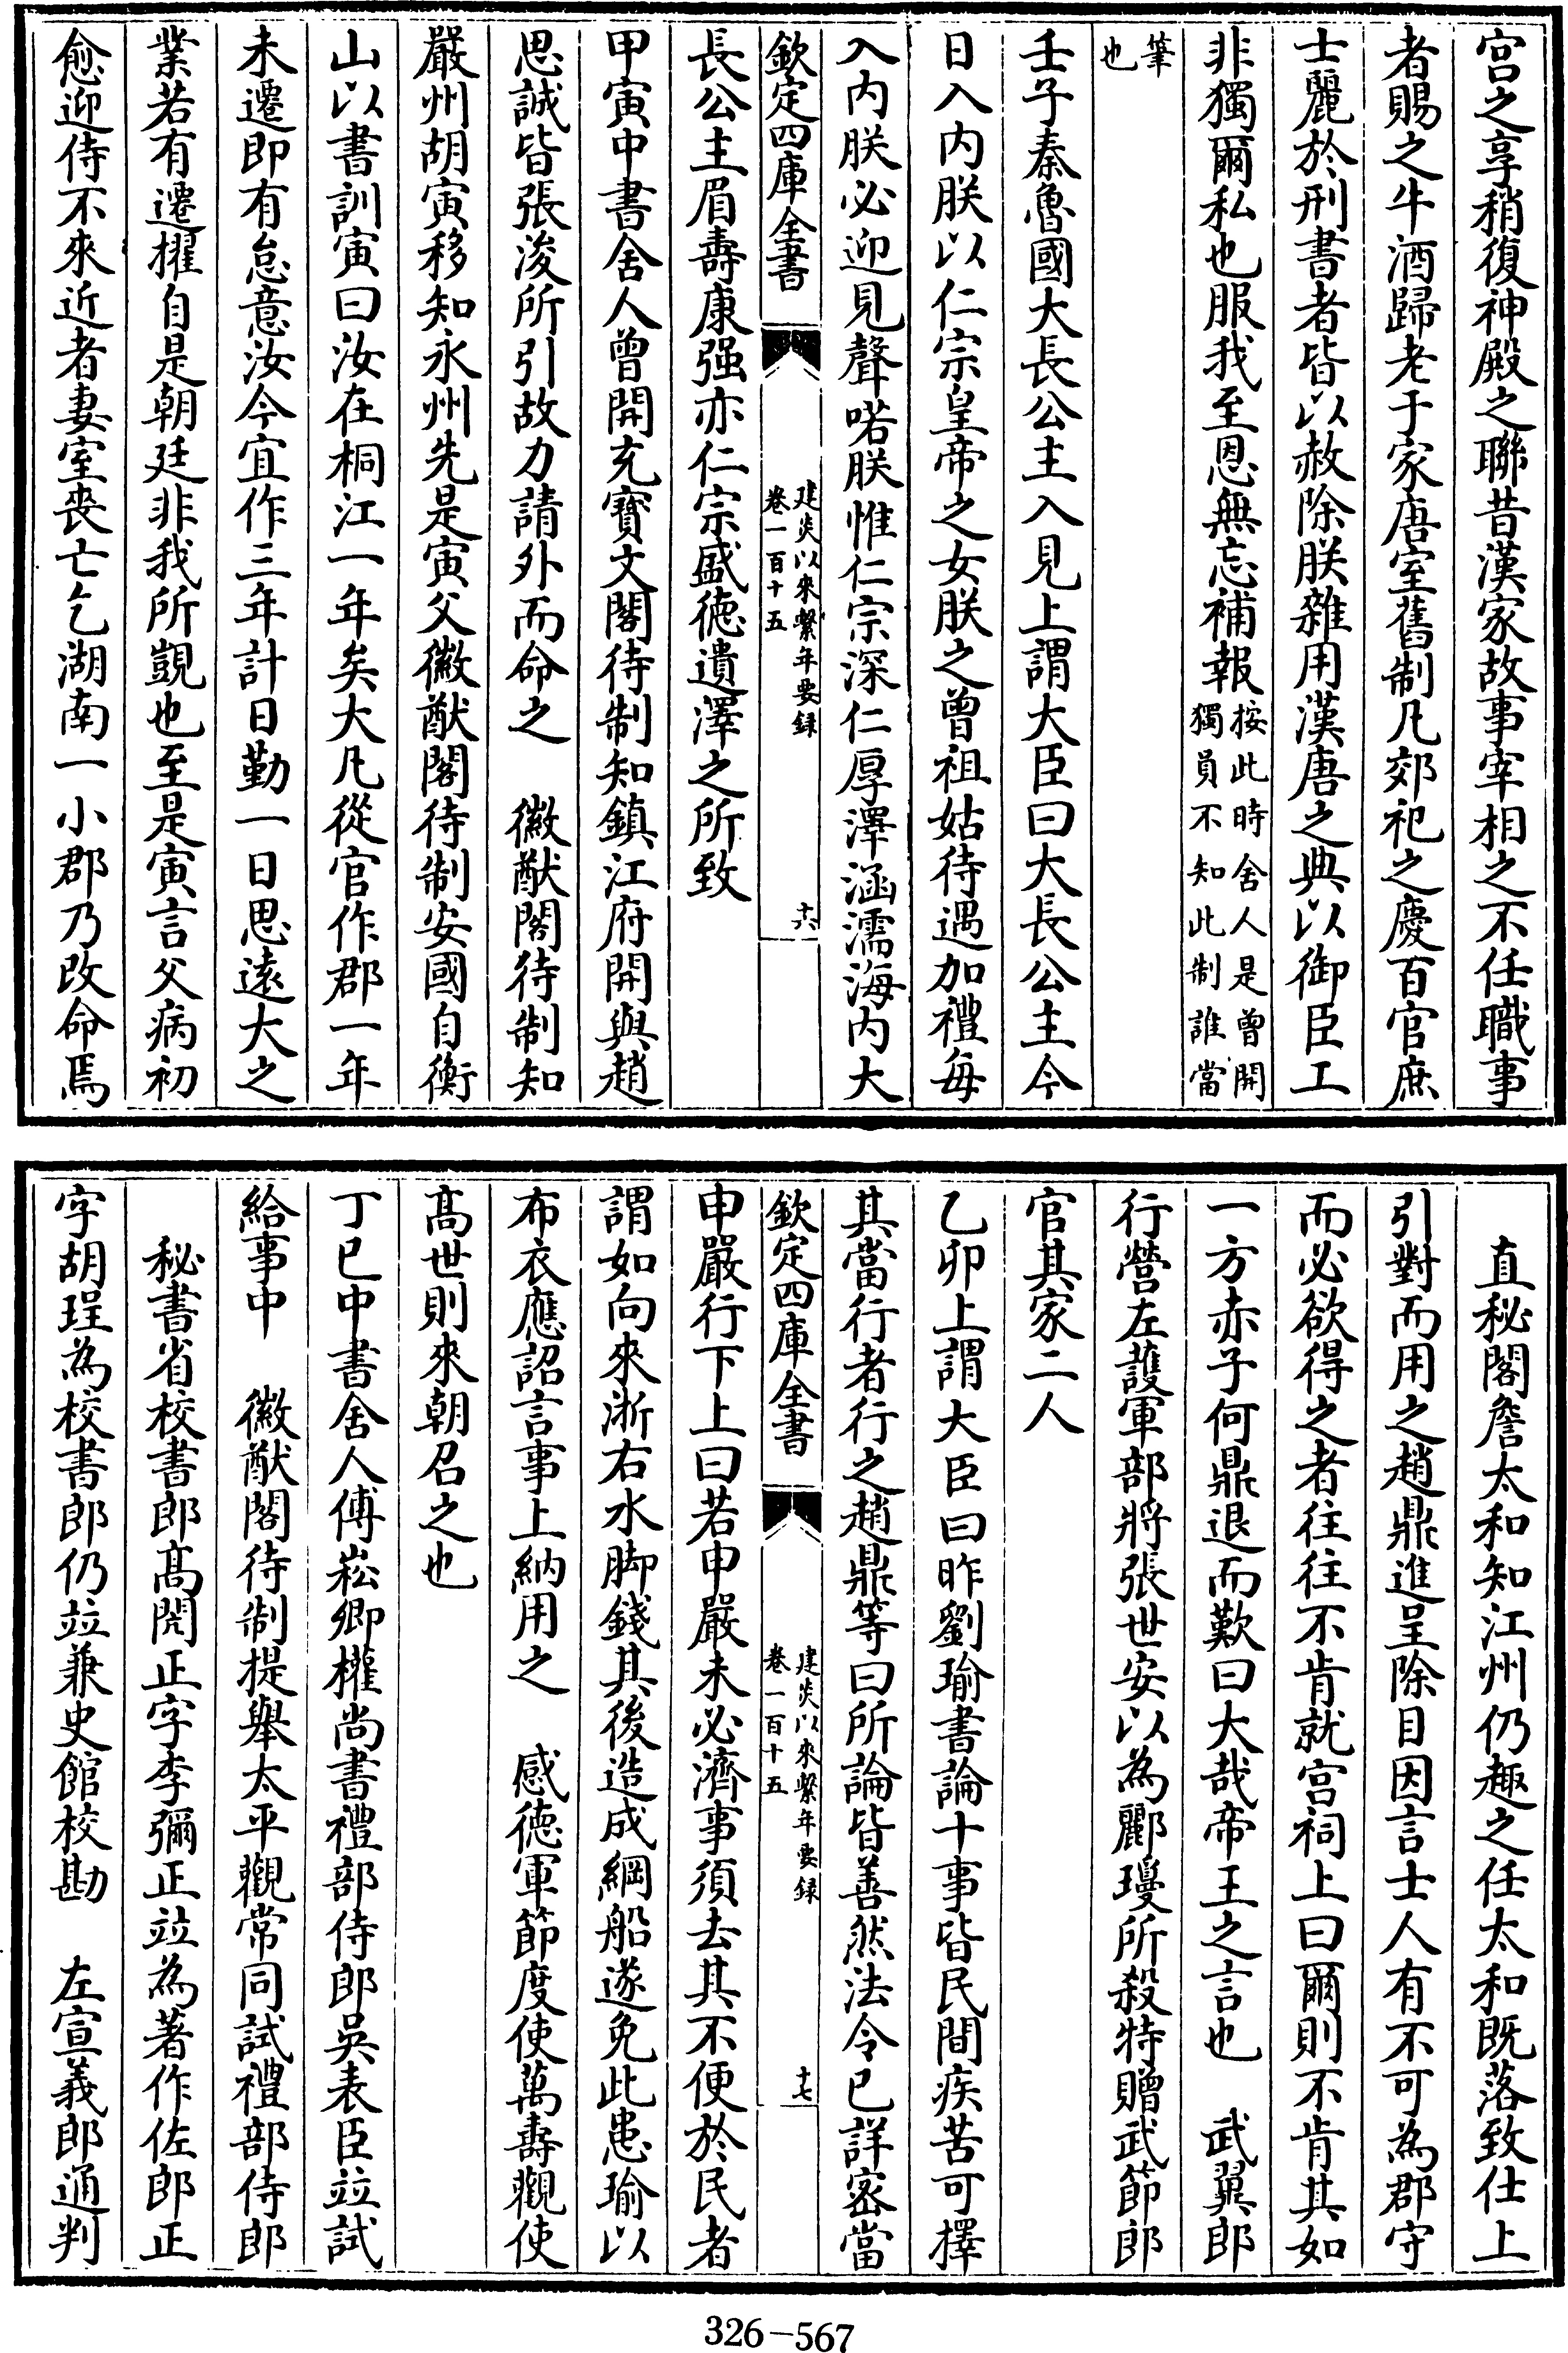 宫之享稍復神殿之聯昔漢家故事宰相之不任職事
者賜之牛酒歸老于家唐室舊制凡郊祀之慶百官庶
士麗於刑書者皆以赦除朕雜用漢唐之典以御臣工
非獨爾私也服我至恩無忘補報按此時舍人是曾開
獨員不知此制誰當
筆
也
壬子秦魯國大長公主入見上謂大臣曰大長公主今
日入内朕以仁宗皇帝之女朕之曾祖姑待遇加禮每
入内朕必迎見聲喏朕惟仁宗深仁厚澤涵濡海内大
欽定四庫全書
建炎以來繫年要録
卷一百十五
十六
長公主眉壽康强亦仁宗盛徳遺澤之所致
甲寅中書舍人曾開充寳文閣待制知鎮江府開與趙
思誠皆張浚所引故力請外而命之　徽猷閣待制知
嚴州胡寅移知永州先是寅父徽猷閣待制安國自衡
山以書訓寅曰汝在桐江一年矣大凡從官作郡一年
未遷即有怠意汝今宜作三年計日勤一日思遠大之
業若有遷擢自是朝廷非我所覬也至是寅言父病初
愈迎侍不來近者妻室喪亡乞湖南一小郡乃改命焉
直秘閣詹太和知江州仍趣之任太和既落致仕上
引對而用之趙鼎進呈除目因言士人有不可為郡守
而必欲得之者往往不肯就宫祠上曰爾則不肯其如
一方赤子何鼎退而歎曰大哉帝王之言也　武翼郎
行營左護軍部將張世安以為酈瓊所殺特贈武節郎
官其家二人
乙卯上謂大臣曰昨劉瑜書論十事皆民間疾苦可擇
其當行者行之趙鼎等曰所論皆善然法令已詳密當
欽定四庫全書
建炎以來繫年要録
卷一百十五
十七
申嚴行下上曰若申嚴未必濟事須去其不便於民者
謂如向來浙右水脚錢其後造成綱船遂免此患瑜以
布衣應詔言事上納用之　感徳軍節度使萬壽觀使
髙世則來朝召之也
丁巳中書舍人傅崧卿權尚書禮部侍郎吳表臣竝試
給事中　徽猷閣待制提舉太平觀常同試禮部侍郎
秘書省校書郎髙閌正字李彌正竝為著作佐郎正
字胡珵為校書郎仍竝兼史館校勘　左宣義郎通判
326-567